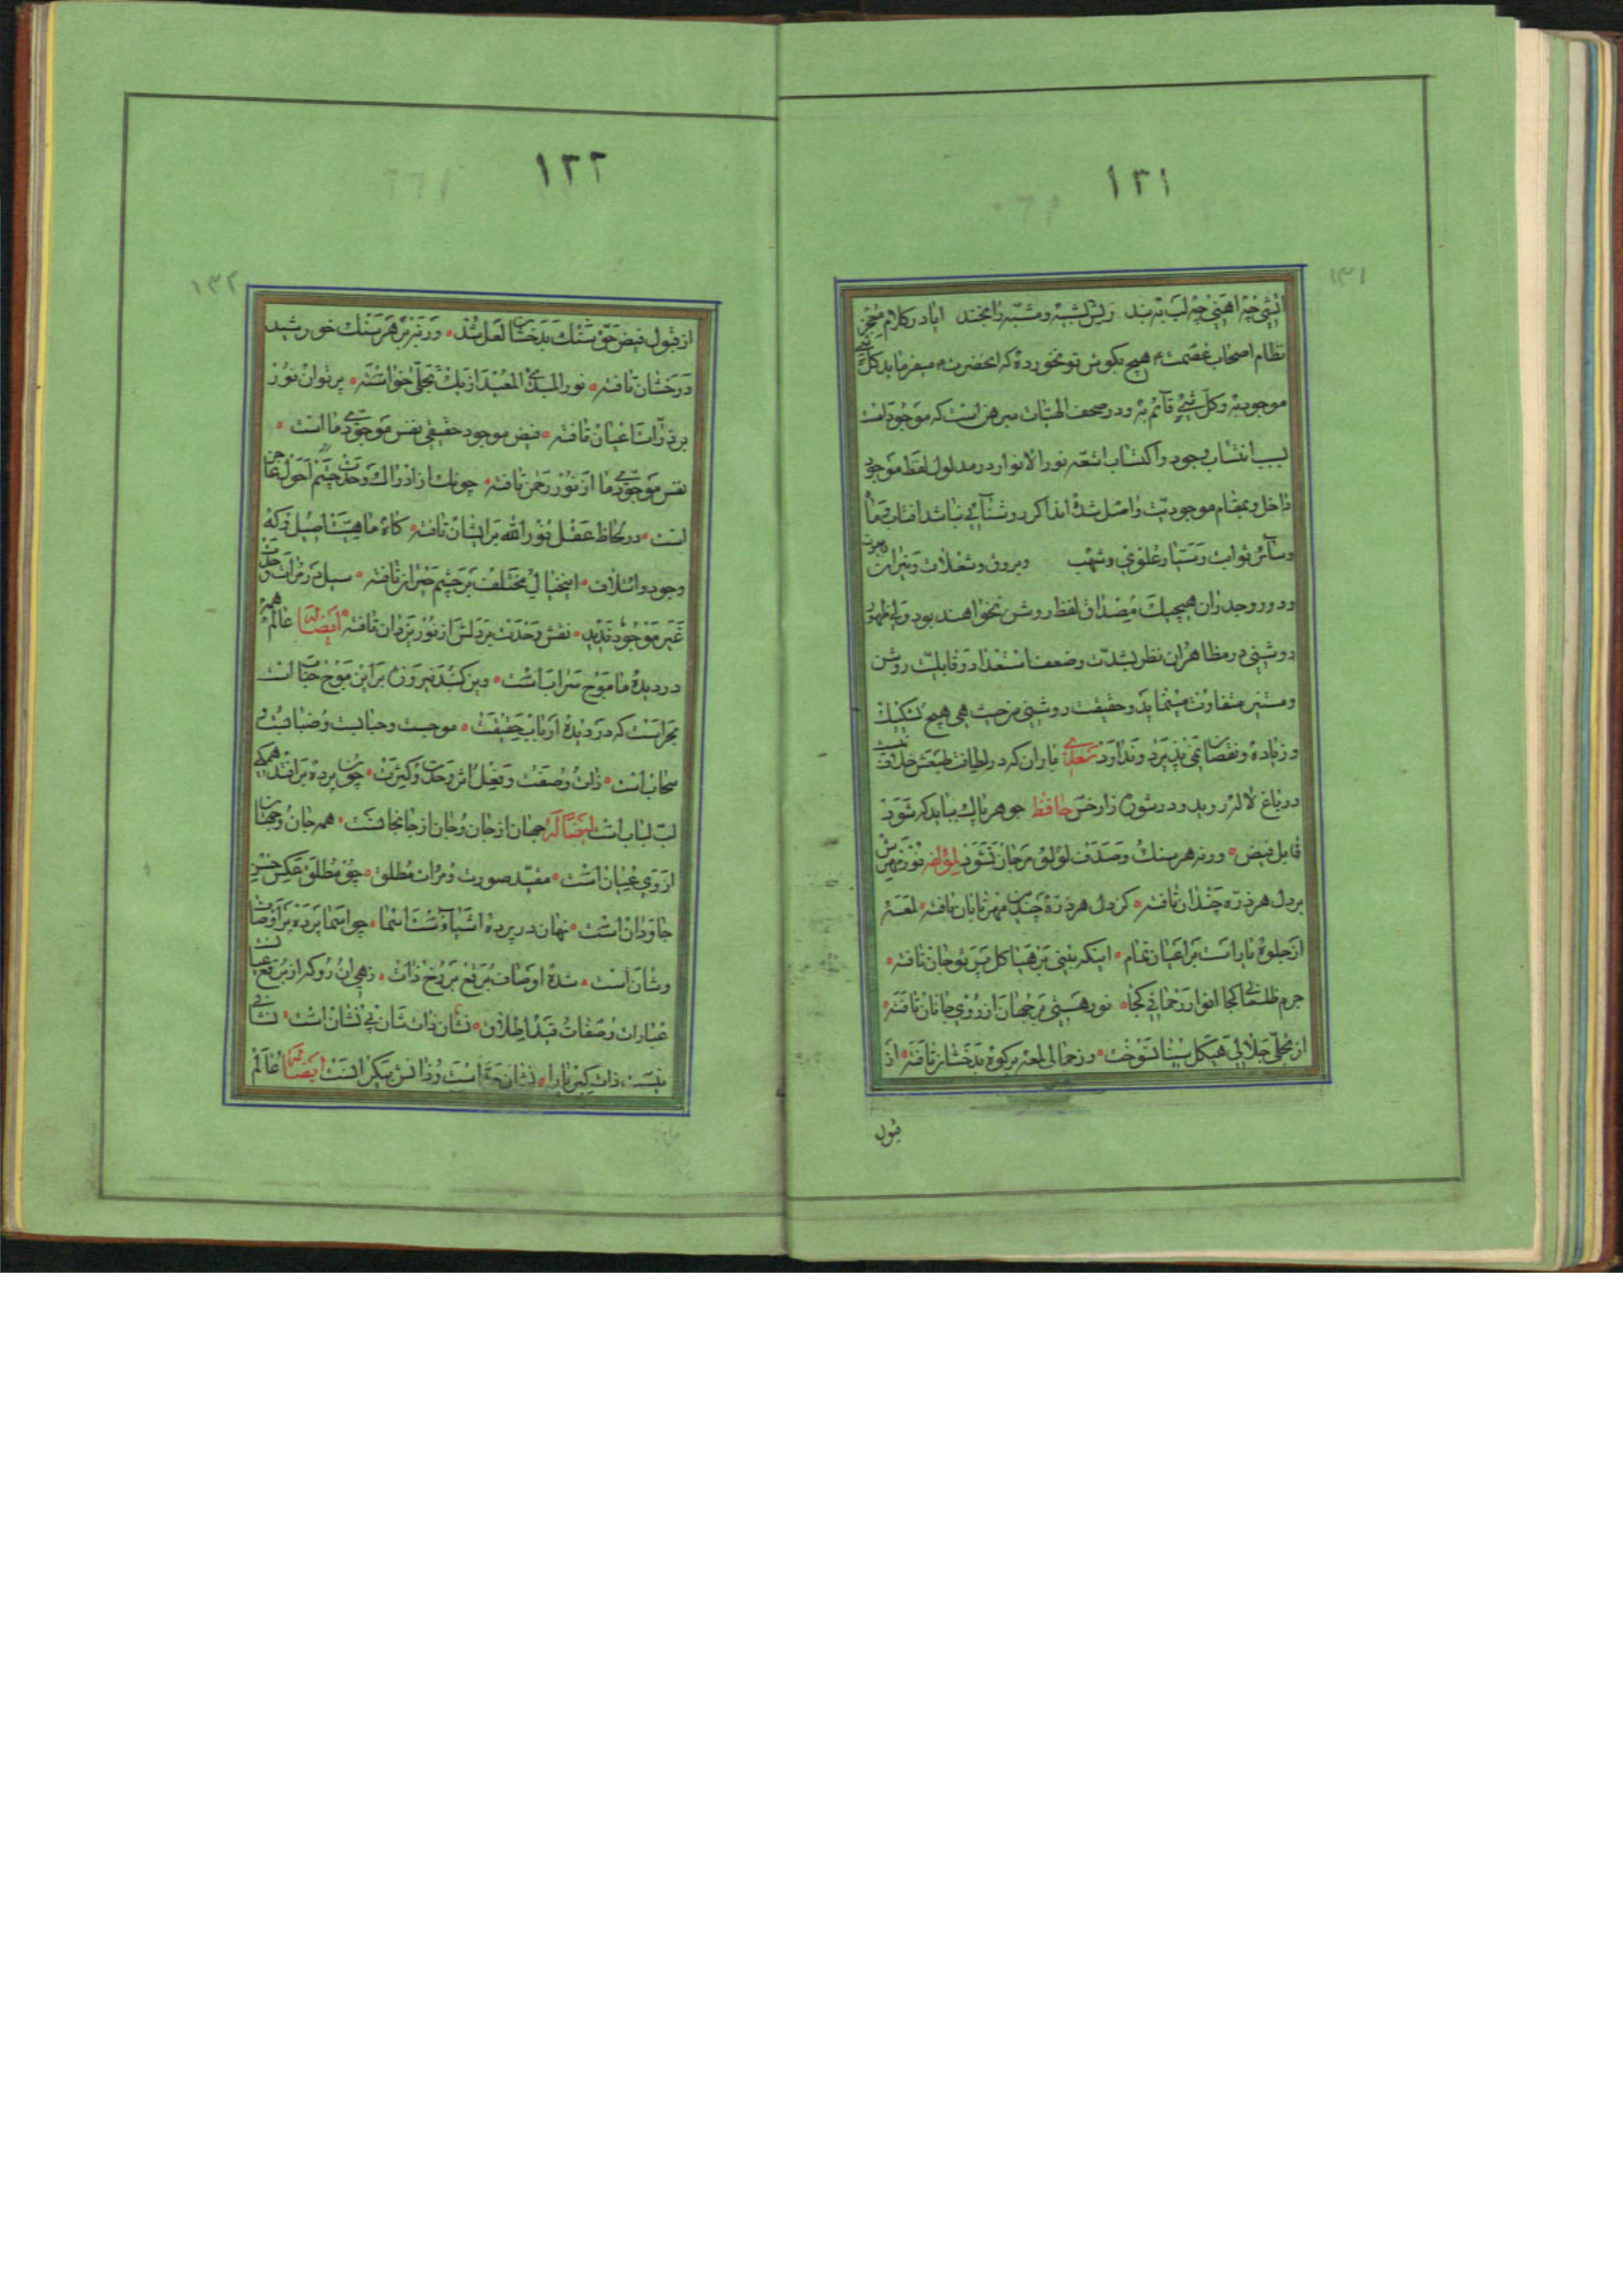 ۱۳۱
۱۲۱
آتشی چه آهنی چه لب ببند ریش تشبیه و مشبه را بخند ایا در کلام معجز
نظام اصحاب عصمت هیچ بگوش تو نخورده که انحضرت میفرماید کل شیء
موجود به وکل شیء قائم به ودر صحف الهیات مبرهن است که موجودات
بسبب انتساب وجود واکتساب اشعه نور الانوار در مدلول لفظ موجود
داخل وبمقام موجودیت واصل شده اند اگر روشنایی نباشد افتاب وماه
وسائر ثوابت وسیار علوی وشهب وبروق وشعلات ونیران
ودور وجدران هیچیک مصداق لفظ روشن نخواهند بود ولی ظهور
روشنی در مظاهر ان نظر بشدت وضعف استعداد وقابلیت روشن
ومستنیر متفاوت مینماید وحقیقت روشنی من حیث هی هیچ تشکیک
وزیاده ونقصان نمی پذیرد وندارد سعدی باران که در لطافت طبعش خلاف نیست
در باغ لاله روید ودر شوره زار خس حافظ جوهر پاک بباید که شود
قابل فیض ورنه هر سنک وصدف لؤلؤ مرجان نشود لمؤلفه نور مهرش
بر دل هر ذره چندان تافته کز دل هر ذره چندین مهر تابان تافته لمعه
از جلوه یار است بر اعیان تمام اینکه بینی بر هیاکل پرتو جان تافته
جرم ظلمانی کجا انوار رحمانی کجا نور هستی بر جهان از روی جانان تافته
از تجلی جلالی هیکل سینا بسوخت وز جمالی لمعه بر کوه بدخشان تافته از
قبول
۱۲۲
۱۳۲
از قبول فیض حق سنک بدخشان لعل شد ورنه بر هر سنک خورشید
درخشان تافته نور المبدئ المعید از یک تجلی خواسته پرتو ان نور
بر ذرات اعیان تافته فیض موجود حقیقی نفس موجودی ما است
نفس موجودی ما از نور رحمن تافته چونکه از ادراک وحدت چشم احول عاجز
است در لحاظ عقل نور الله بر ایشان تافته کاه ماهیت اصیل وکه
وجود وائتلاف اینخیالی مختلف بر چشم حیران تافته سیل در مرات وحدت
غیر موجودی ندید نقش وحدت بر دلش از نور یزدان تافته ایضا له عالم همه
در دیده ما موج سراب است وین کنبد فیروزه بر این موج حباب است
بحر است که در دیده ارباب حقیقت موجست وحبابست وضبابست و
سحاب است ذات وصفت وفعل اثر وحدت وکثرت چون پرده برافتد همکی
لب لباب است ایضا له جهان از جان وجان از جانجانست همه جان وجهان
از وی عیان است مقید صورت ومرات مطلق چو مطلق عکس حسن
جاودان است نهان در پرده اشیاست اسما چو اسما پرده بر اوصاف
وشان است شده اوصاف برقع بر رخ ذات زهی ان رو که از برقع عیانست
عبارات وصفات قید اطلاق نشان ذات شان بی نشان است نشانی
نیست ذات کبریا را نشان است وذاتش بیکرانست ایضا له عالم